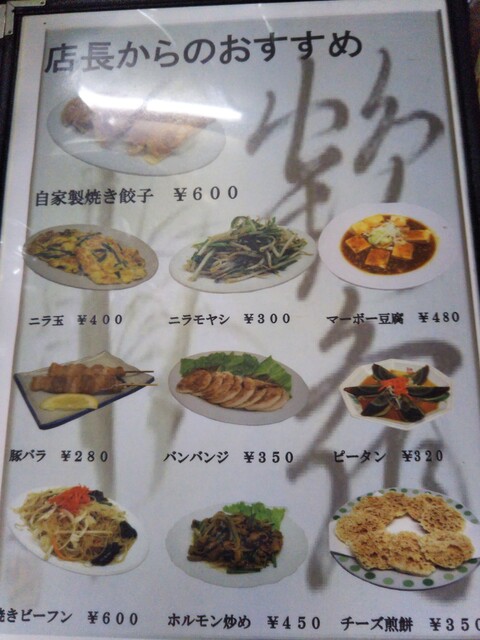 店長からのおすすめ
自家製焼き餃子 ￥600
ニラ玉 ￥400 ニラモヤシ ￥300 マーボー豆腐 ￥480
豚バラ ￥280 バンバンジ ￥350 ピータン ￥320
きビーフン ￥600 ホルモン炒め ￥450 チーズ煎餅 ￥350